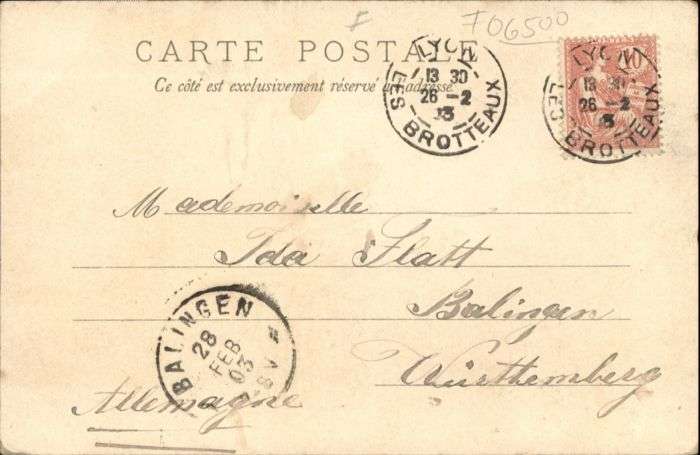 F
F06500
CARTE POSTALE
Ce côté est exclusivement réservé à l'adresse
LYON
13 30
26 -2
03
LES BROTTEAUX
10
LYON
13 30
26 -2
03
LES BROTTEAUX
Mademoiselle
Ida Flatt
Balingen
Württhemberg
Allemagne
BALINGEN
28
FEB
03